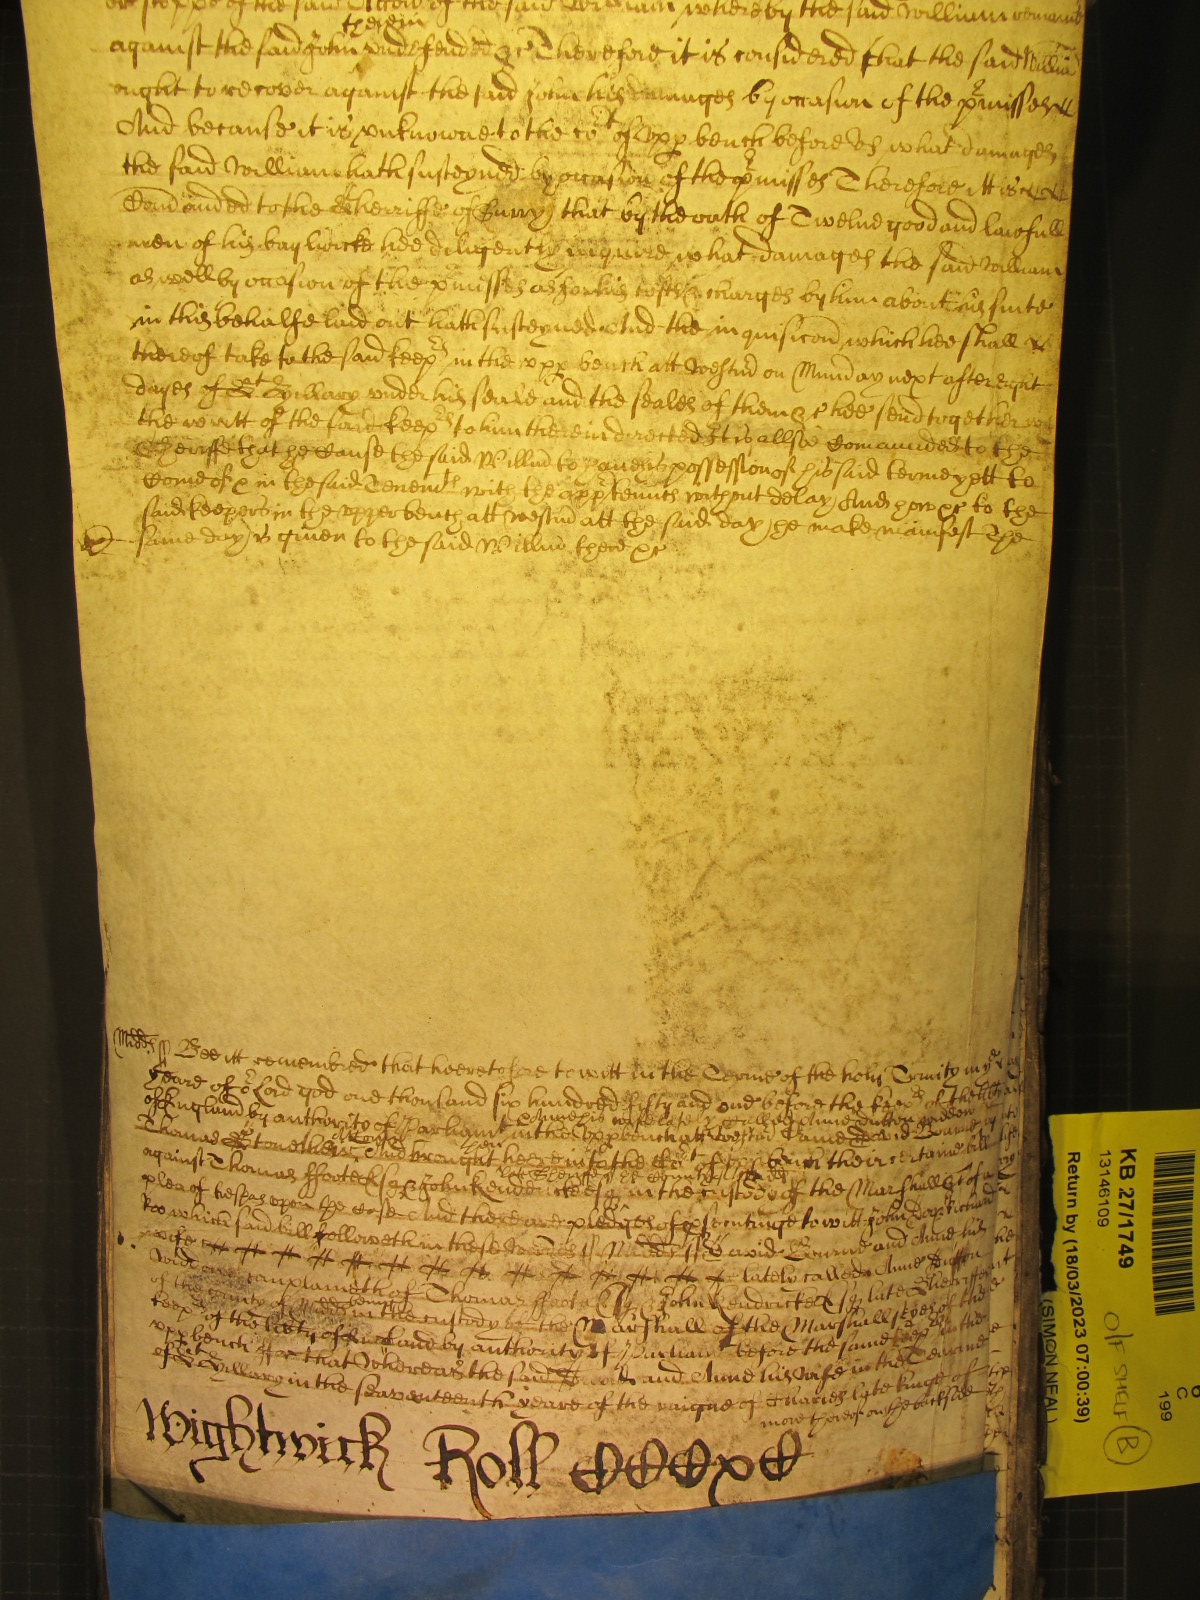 of the said William whereby the said William remaine
therein
against the said John undefended &c Therefore it is considered that the said Willia
ought to recover against the said John his damages by occasion of the p'misses
And because it is unknowne to the co't of upp bench before us what damages
the said William hath susteyned by occasion of the p'misses Therefore itt is
Comanded to the Sherriffe of Surry that by the oath of Twelve good and lawfull
men of his baylywicke hee diligently inquire what damages the said William
as well by occasion of the p'misses as for his costs & charges by him about his suite
in this behalfe laid out hath susteyned And the inquisicon which hee shall
thereof take to the said keep's in the upp bench att Westm' on Munday next after eight
dayes of St Hyllary under his seale and the seales of them &c hee send together
the writt of the said keep's to him therein directed It is allsoe Comanded to the
Sheriffe that he Cause the said Willm to have his possession of his said terme yett to
Come of & in the said Tenem'ts with the app'tennces without delay And how &c to the
said keepers in the upper bench att Westm' att the said day he make manifest The
same day is given to the said Willm there &c
Midds ss Bee itt remembred that heretofore to witt in the Terme of the holy Trinity in
yeare of o'r Lord god one thousand six hundred fifty and one before the keep's of the liberty
of England by authority of Parliamt in the upp bench att Westm' Came David Bourne
Anne his wife lately Called Anne Dutton
Thomas Stonestreet And brought here into the Co't of their certaine bill
against Thomas ffoote Esq & John Kendricke Esq in the custody of the Marshall &c of a
plea of trespas upon the Case And there are pledges of p'secutinge to witt John Doe Richard
Roo which said bill followeth in these words ss Midds ss David Bourne and Anne his
wife lately called Anne Dutton
complaineth of Thomas ffoote Esq & John Kendricke Esq late Sherriffe
of the County of Midds in the custody of the Marshall of the Marshallsyes of the
keep's of the liberty of England by authority of Parliamt before the same keep's in the
upp bench for that Whereas the said David and Anne his wife in the Terme
of St Hyllary in the seaventeenth yeare of the raigne of Charles late kinge of
more thereof on the backside
Wightwick Roll CCCxC
KB 27/1749
13146109
Return by (18/03/2023 07:00:39)
(SIMON NEAL)
O/F SHELF B
C
199